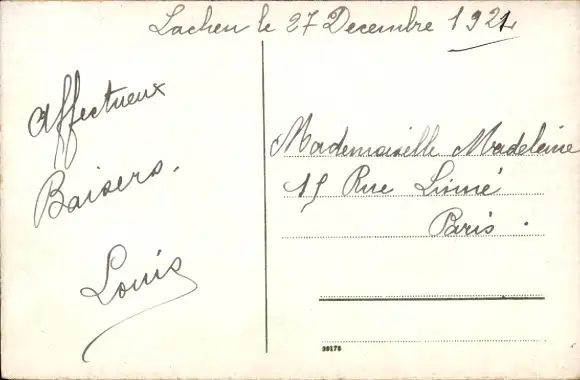 Lachen le 27 Decembre 1921
Affectueux
Baisers.
Louis
Mademoiselle Madeleine
15 Rue Linné
Paris.
39175